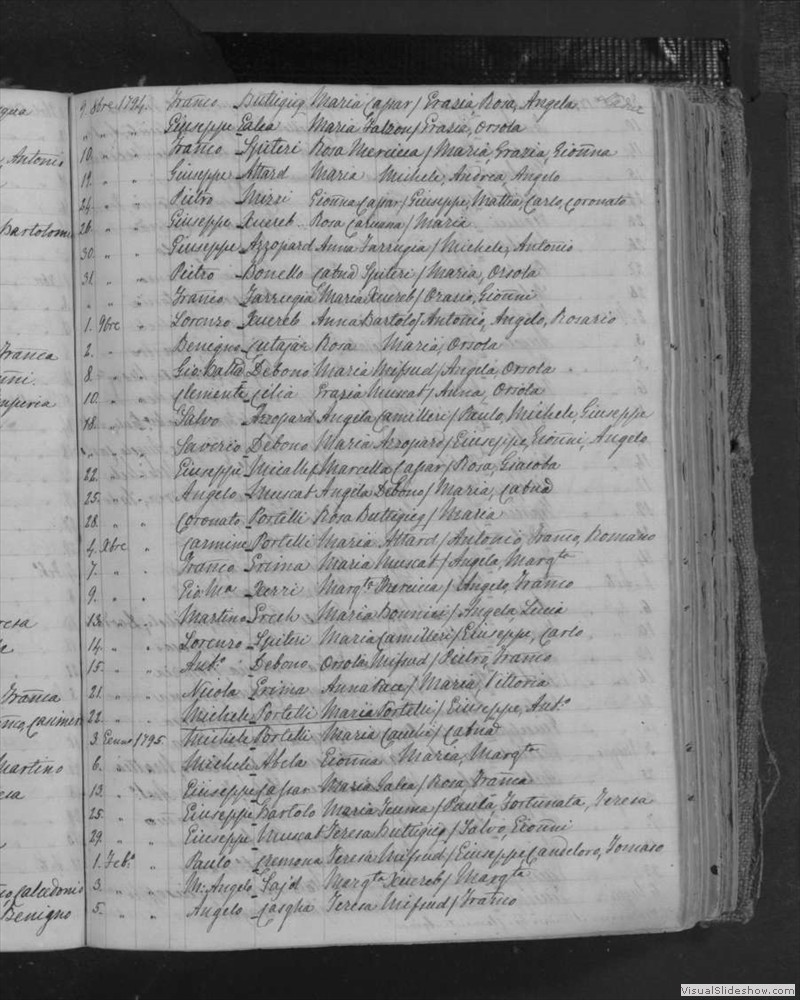 9. 8bre 1794. Franco Buttigieg Maria Caxar / Grazia, Rosa, Angela
" " " Giuseppe Galea Maria Falzon / Grazia, Orsola
10. " " Franco Spiteri Rosa Mercieca / Maria, Grazia, Gionna
19. " " Giuseppe Attard Maria Michele, Andrea, Angelo
24. " " Pietro Mizzi Gionna Caxar / Giuseppe, Mattia Carlo, Coronato
26. " " Giuseppe Xuereb Rosa Caruana / Maria
30. " " Giuseppe Azzopard Anna Farrugia / Michele, Antonio
31. " " Pietro Bonello Catna Spiteri / Maria, Orsola
Franco Farrugia Maria Xuereb / Orasio, Gionni
1. 9bre " Lorenzo Xuereb Anna Bartolo / Antonio, Angelo, Rosario
2. " " Benigno Cutajar Rosa Maria, Orsola
8. " " Gio Batta Debono Maria Mifsud / Angela, Orsola
10. " " Clemente Cilia Grazia Muscat / Anna, Orsola
18. " " Salvo Azzopard Angela Camilleri / Paulo, Michele, Giuseppe
" " " Saverio Debono Maria Azzopard / Giuseppe, Gionni, Angelo
22. " " Giuseppe Micallef Marcella Caxar / Rosa, Giacoba
25. " " Angelo Muscat Angela Debono / Maria, Catna
28. " " Coronato Portelli Rosa Buttigieg / Maria
4. Xbre " Carmine Portelli Maria Attard / Antonio, Franco, Romano
7. " " Franco Grima Maria Muscat / Angelo, Margta
9. " " Gio Ma Xerri Margta Mercieca / Angelo, Franco
13. " " Martino Grech Maria Bonnici / Angela, Lucia
14. " " Lorenzo Spiteri Maria Camilleri / Giuseppe, Carlo
15. " " Anto Debono Orsola Mifsud / Pietro, Franco
21. " " Nicola Grima Anna Pace / Maria, Vittoria
22. " " Michele Portelli Maria Portelli / Giuseppe, Anto
3. Genno 1795. Michele Portelli Maria / Catna
6. " " Michele Abela Gionna Maria, Margta
13. " " Giuseppe Caxar Maria Galea / Rosa, Franca
25. " " Giuseppe Bartolo Maria Teuma / Paula, Fortunata, Teresa
29. " " Giuseppe Muscat Teresa Buttigieg / Salvo, Gionni
1. Febo " Paulo Cremona Teresa Mifsud / Giuseppe Candeloro, Tomaso
3. " " M: Angelo Sajd Margta Xuereb / Margta
5. " " Angelo Casgha Teresa Mifsud / Franco
Antonio
Bartolomeo
Franca
Franca
Martino
Calcedonio
Benigno
VisualSlideshow.com